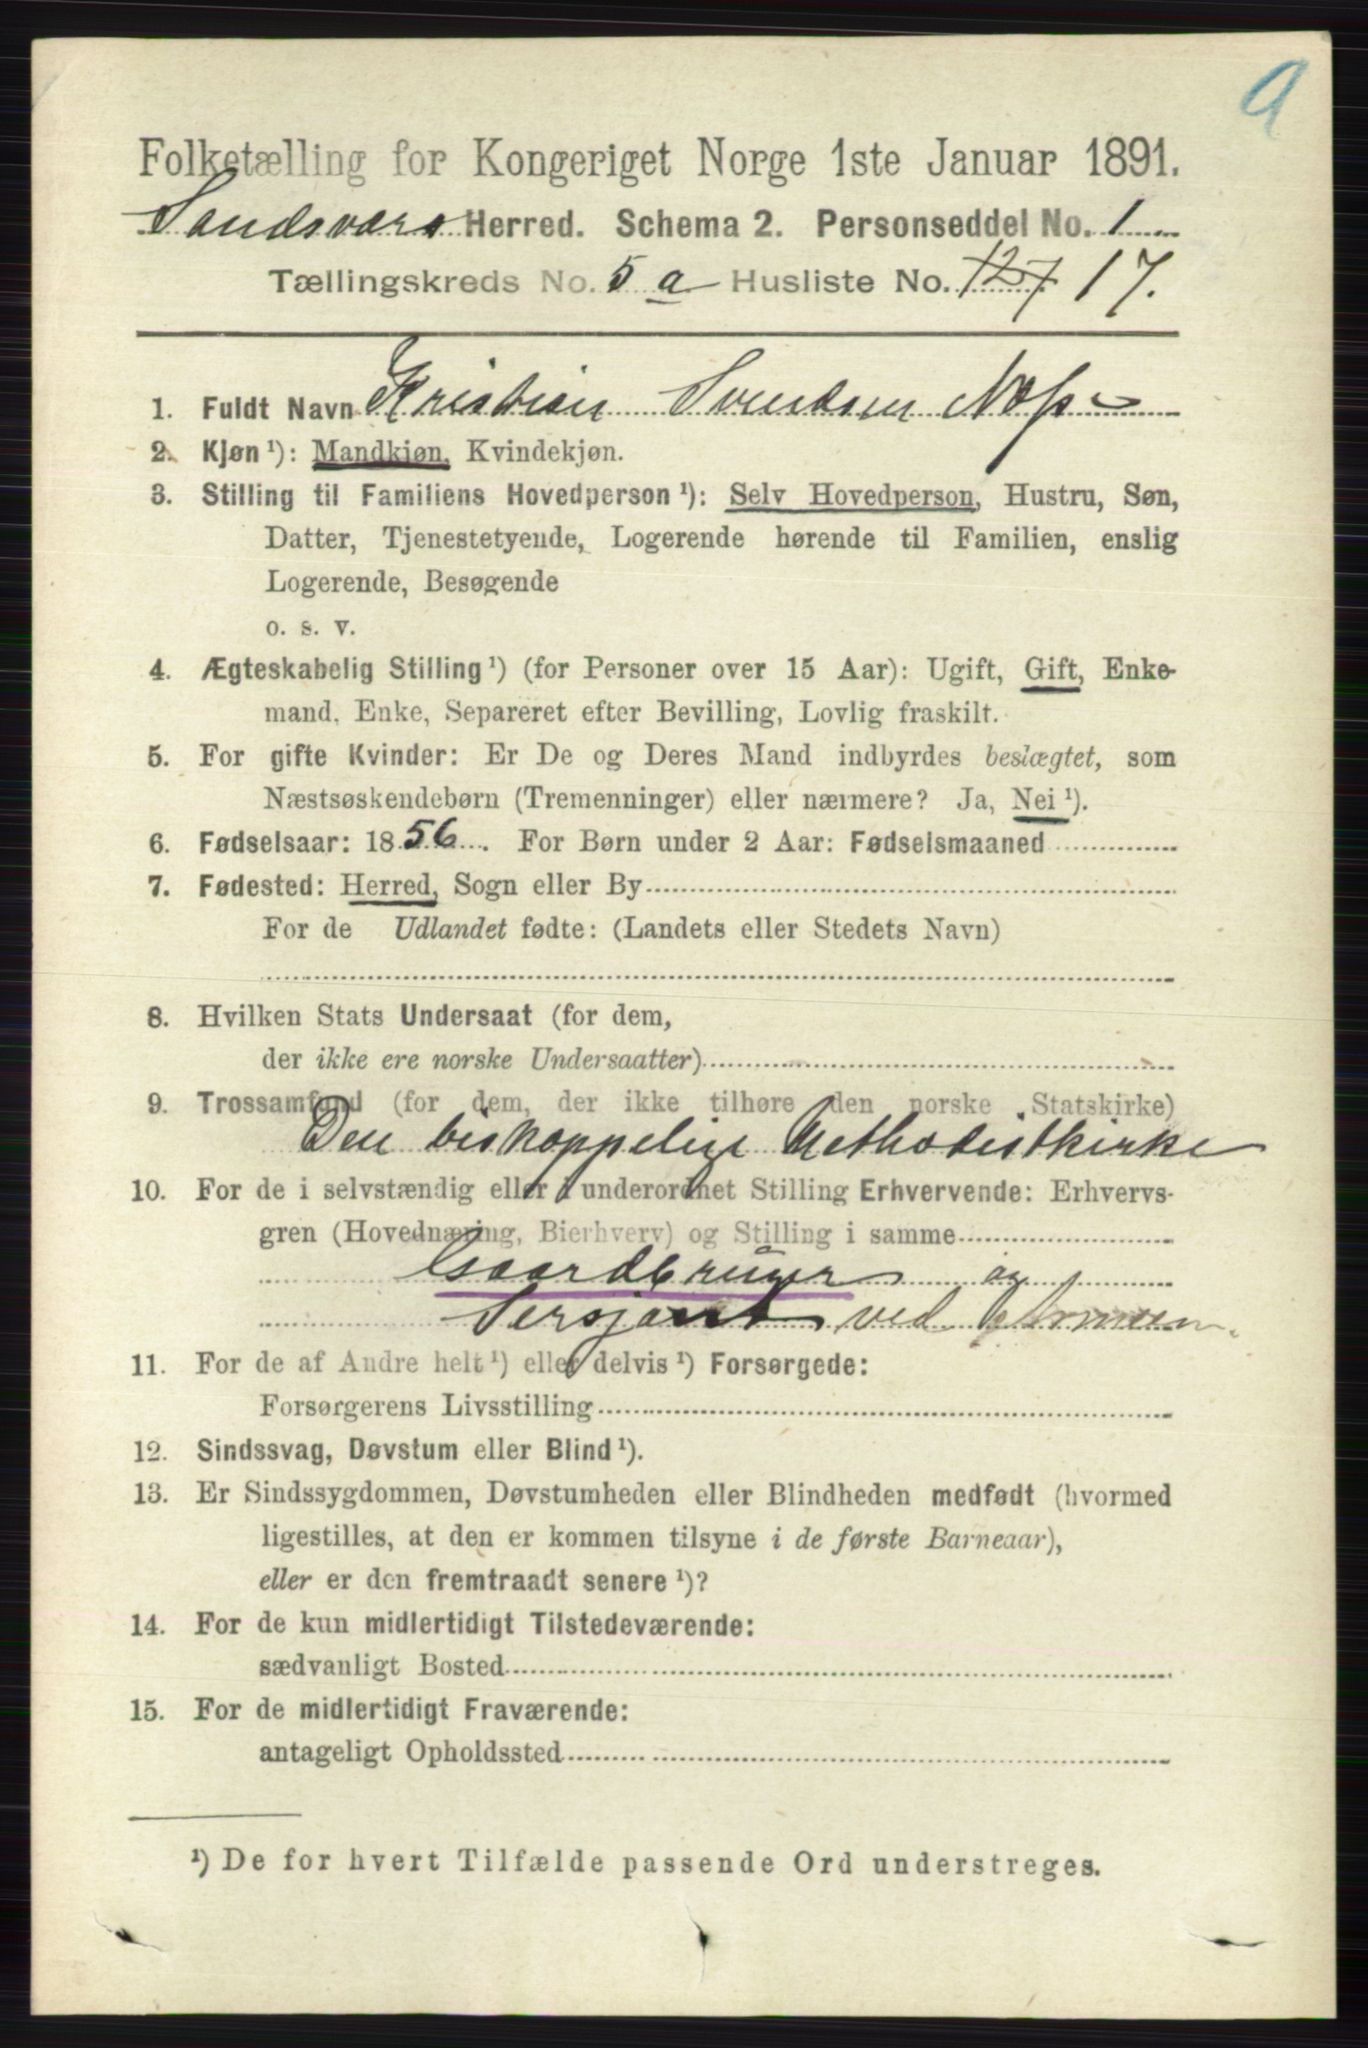 9
Folketælling for Kongeriget Norge 1ste Januar 1891.
Sandsværs Herred. Schema 2. Personseddel No. 1
Tællingskreds No. 5 a Husliste No. 127 17.
1. Fuldt Navn Kristian Svendsen
2. Kjøn ¹): Mandkjøn, Kvindekjøn.
3. Stilling til Familiens Hovedperson ¹): Selv Hovedperson, Hustru, Søn,
Datter, Tjenestetyende, Logerende hørende til Familien, enslig
Logerende, Besøgende
o. s. v.
4. Ægteskabelig Stilling ¹) (for Personer over 15 Aar): Ugift, Gift, Enke-
mand, Enke, Separeret efter Bevilling, Lovlig fraskilt.
5. For gifte Kvinder: Er De og Deres Mand indbyrdes beslægtet, som
Næstsøskendebørn (Tremenninger) eller nærmere? Ja, Nei ¹).
6. Fødselsaar: 1856. For Børn under 2 Aar: Fødselsmaaned
7. Fødested: Herred, Sogn eller By
For de Udlandet fødte: (Landets eller Stedets Navn)
8. Hvilken Stats Undersaat (for dem,
der ikke ere norske Undersaatter)
9. Trossamfund (for dem, der ikke tilhøre den norske Statskirke)
Den biskoppelige Methodistkirke
10. For de i selvstændig eller i underordnet Stilling Erhvervende: Erhvervs-
gren (Hovednæring, Bierhverv) og Stilling i samme
Gaardbruger og
Sersjant ved Armeen.
11. For de af Andre helt ¹) eller delvis ¹) Forsørgede:
Forsørgerens Livsstilling
12. Sindssvag, Døvstum eller Blind ¹).
13. Er Sindssygdommen, Døvstumheden eller Blindheden medfødt (hvormed
ligestilles, at den er kommen tilsyne i de første Barneaar),
eller er den fremtraadt senere ¹)?
14. For de kun midlertidigt Tilstedeværende:
sædvanligt Bosted
15. For de midlertidigt Fraværende:
antageligt Opholdssted
¹) De for hvert Tilfælde passende Ord understreges.